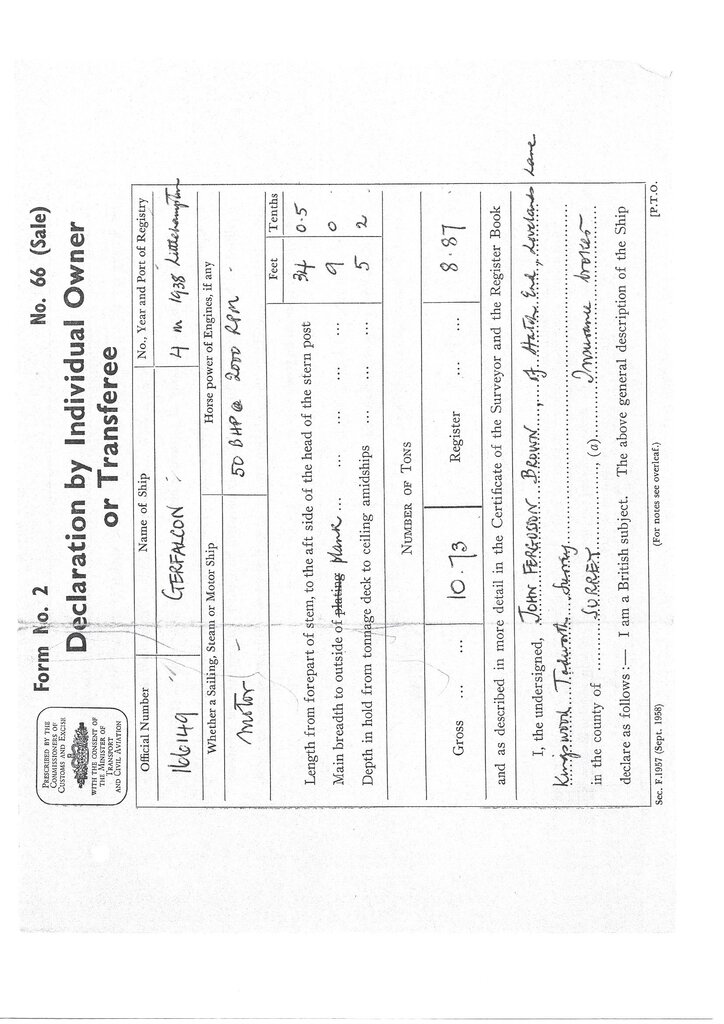 Form No. 2
No. 66 (Sale)
PRESCRIBED BY THE
COMMISSIONERS OF
CUSTOMS AND EXCISE
WITH THE CONSENT OF
THE MINISTER OF
TRANSPORT
AND CIVIL AVIATION
Declaration by Individual Owner
or Transferee
Official Number
Name of Ship
No., Year and Port of Registry
166149
GERFALCON
4 in 1938 Littlehampton
Whether a Sailing, Steam or Motor Ship
Horse power of Engines, if any
Motor
50 BHP @ 2000 RPM
Feet Tenths
Length from forepart of stem, to the aft side of the head of the stern post 34 0.5
Main breadth to outside of plating plank ... ... ... ... ... 9 0
Depth in hold from tonnage deck to ceiling amidships ... ... ... 5 2
NUMBER OF TONS
Gross ... ... 10.73 Register ... ... 8.87
and as described in more detail in the Certificate of the Surveyor and the Register Book
I, the undersigned, JOHN FERGUSON BROWN, of Hatch End, Lovelands Lane
Kingswood Tadworth Surrey
in the county of SURREY, (a) Insurance broker
declare as follows :— I am a British subject. The above general description of the Ship
Sec. F.1957 (Sept. 1958)
(For notes see overleaf.)
[P.T.O.